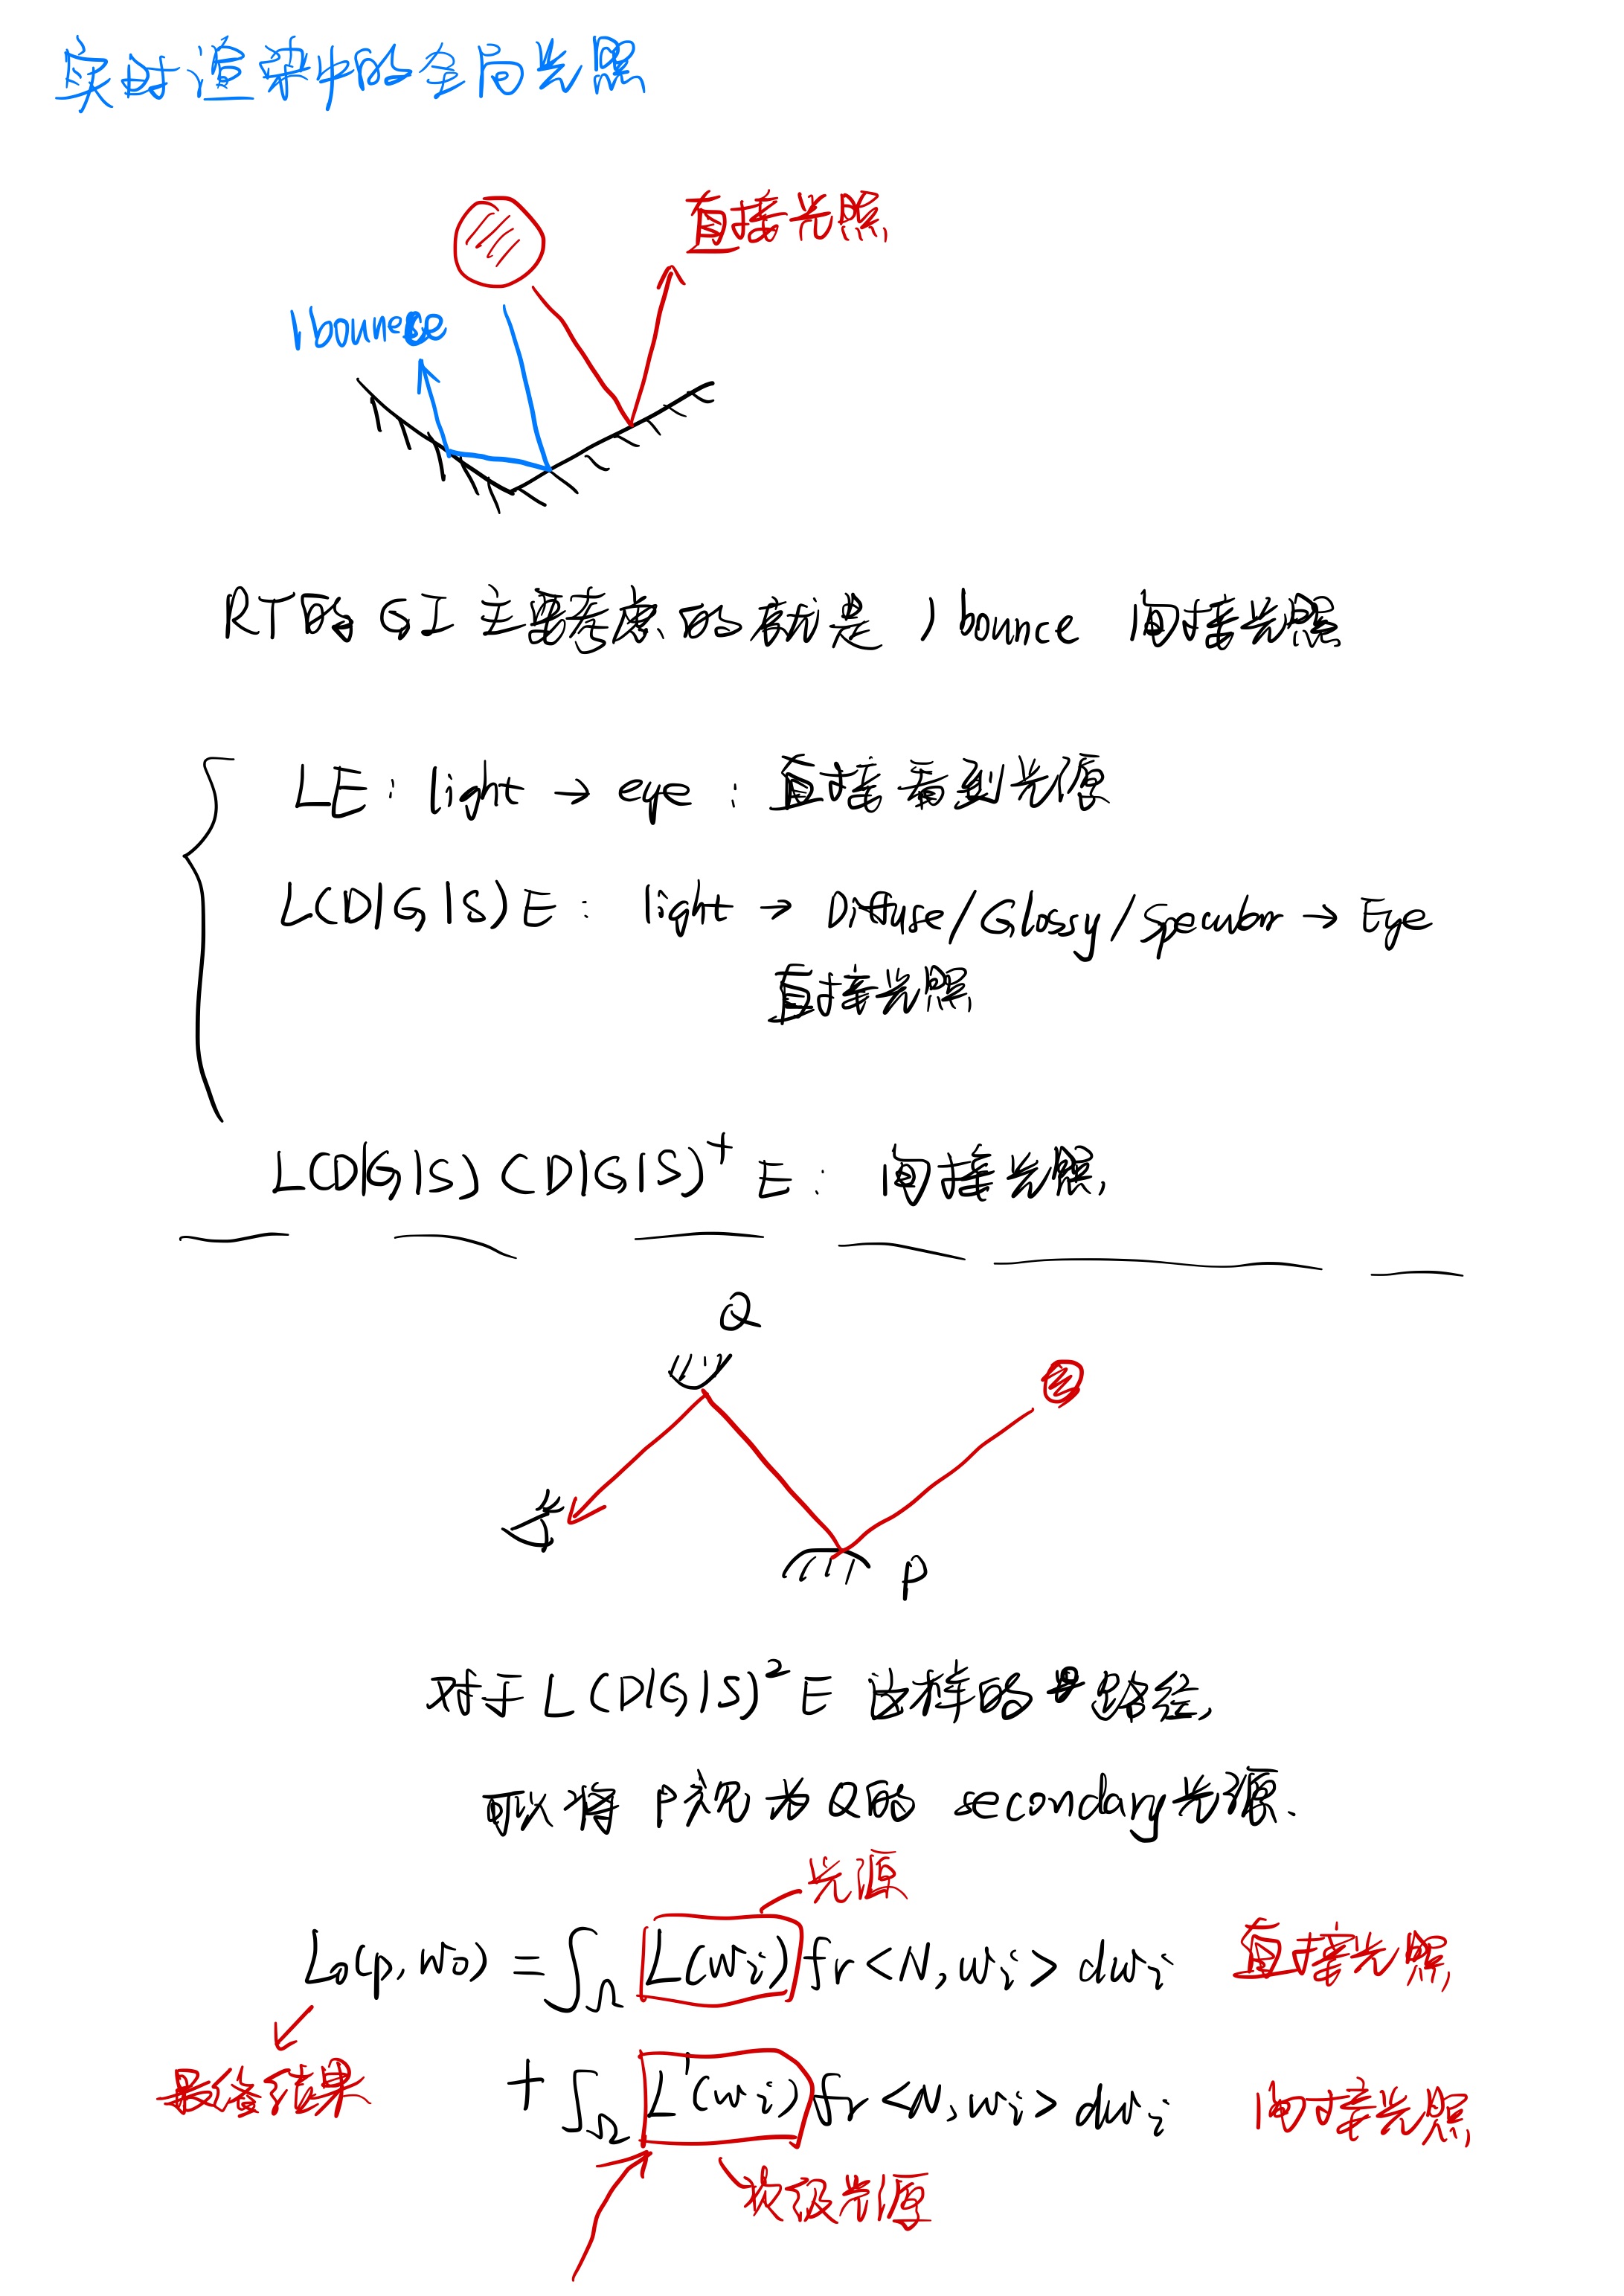 实时渲染中的全局光照
直接光照
1 bounce
RT的GI主要考虑的就是 1 bounce 间接光照
LE: light → eye : 直接看到光源
L(D|G|S)E: light → Diffuse/Glossy/Specular → Eye
直接光照
L(D|G|S)(D|G|S)⁺E: 间接光照,
Q
P
对于L(D|G|S)²E 这样的路径,
可以将P视为Q的 secondary光源.
光源
Lo(p,wo) = ∫Ω L(wi) fr <N,wi> dwi 直接光照
最终结果
+ ∫Ω L'(wi) fr <N,wi> dwi 间接光照
次级光源